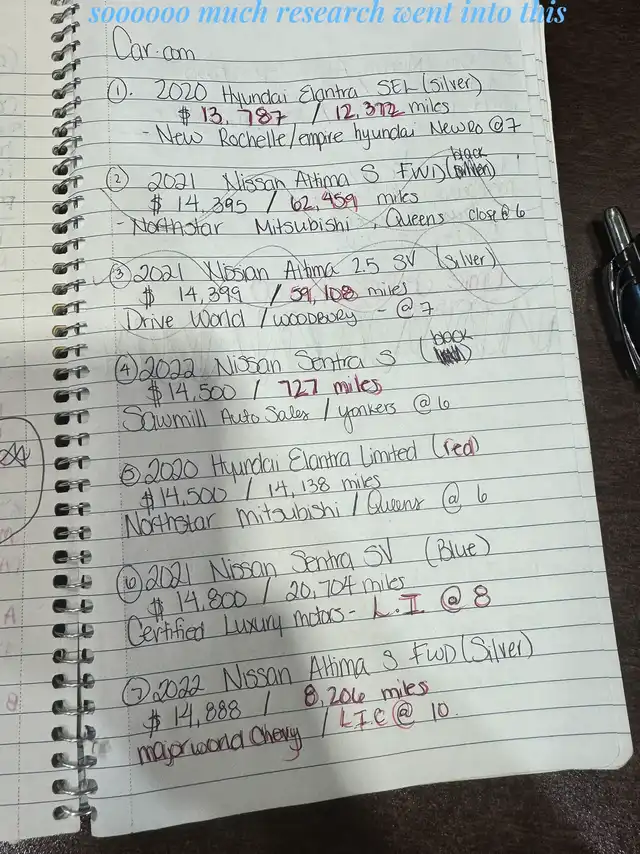 soooooo much research went into this
Car.com
①. 2020 Hyundai Elantra SEL (Silver)
$ 13,787 / 12,372 miles
- New Rochelle/empire hyundai New Ro @7
② 2021 Nissan Altima S FWD (black
$ 14,395 / 62,459 miles
- Northstar Mitsubishi, Queens close@6
③ 2021 Nissan Altima 2.5 SV (Silver)
$ 14,399 / 59,108 miles
Drive World / woodbury - @7
④ 2022 Nissan Sentra S (black
$14,500 / 727 miles
Sawmill Auto Sales / yonkers @6
⑤ 2020 Hyundai Elantra Limited (red)
$14,500 / 14,138 miles
Northstar mitsubishi / Queens @ 6
⑥ 2021 Nissan Sentra SV (Blue)
$ 14,800 / 20,704 miles
Certified Luxury motors - L.I @ 8
⑦. 2022 Nissan Altima S FWD (Silver)
$ 14,888 / 8,206 miles
majorworld Chevy / L I C @ 10.